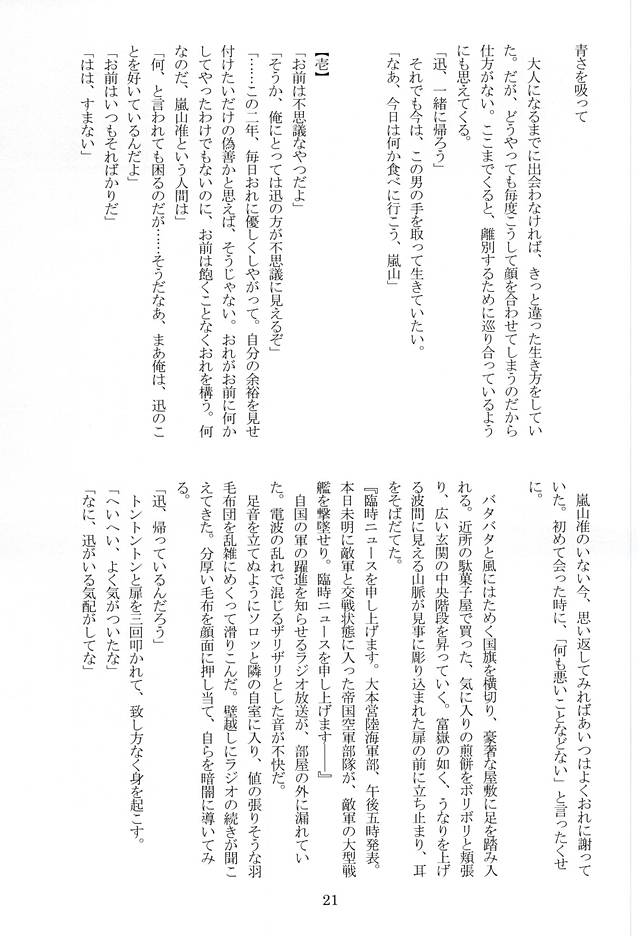 青さを吸って
　大人になるまでに出会わなければ、きっと違った生き方をしてい
た。だが、どうやっても毎度こうして顔を合わせてしまうのだから
仕方がない。ここまでくると、離別するために巡り合っているよう
にも思えてくる。
「迅、一緒に帰ろう」
　それでも今は、この男の手を取って生きていたい。
「なあ、今日は何か食べに行こう、嵐山」
【壱】
「お前は不思議なやつだよ」
「そうか、俺にとっては迅の方が不思議に見えるぞ」
「……この二年、毎日おれに優しくしやがって。自分の余裕を見せ
付けたいだけの偽善かと思えば、そうじゃない。おれがお前に何か
してやったわけでもないのに、お前は飽くことなくおれを構う。何
なのだ、嵐山准という人間は」
「何、と言われても困るのだが……そうだなあ、まあ俺は、迅のこ
とを好いているんだよ」
「お前はいつもそればかりだ」
「はは、すまない」
　嵐山准のいない今、思い返してみればあいつはよくおれに謝って
いた。初めて会った時に、「何も悪いことなどない」と言ったくせ
に。
　バタバタと風にはためく国旗を横切り、豪奢な屋敷に足を踏み入
れる。近所の駄菓子屋で買った、気に入りの煎餅をボリボリと頬張
り、広い玄関の中央階段を昇っていく。富嶽の如く、うなりを上げ
る波間に見える山脈が見事に彫り込まれた扉の前に立ち止まり、耳
をそばだてた。
『臨時ニュースを申し上げます。大本営陸海軍部、午後五時発表。
本日未明に敵軍と交戦状態に入った帝国空軍部隊が、敵軍の大型戦
艦を撃墜せり。臨時ニュースを申し上げます――』
　自国の軍の躍進を知らせるラジオ放送が、部屋の外に漏れてい
た。電波の乱れで混じるザリザリとした音が不快だ。
　足音を立てぬようにソロッと隣の自室に入り、値の張りそうな羽
毛布団を乱雑にめくって滑りこんだ。壁越しにラジオの続きが聞こ
えてきた。分厚い毛布を顔面に押し当て、自らを暗闇に導いてみ
る。
「迅、帰っているんだろう」
　トントントンと扉を三回叩かれて、致し方なく身を起こす。
「へいへい、よく気がついたな」
「なに、迅がいる気配がしてな」
21